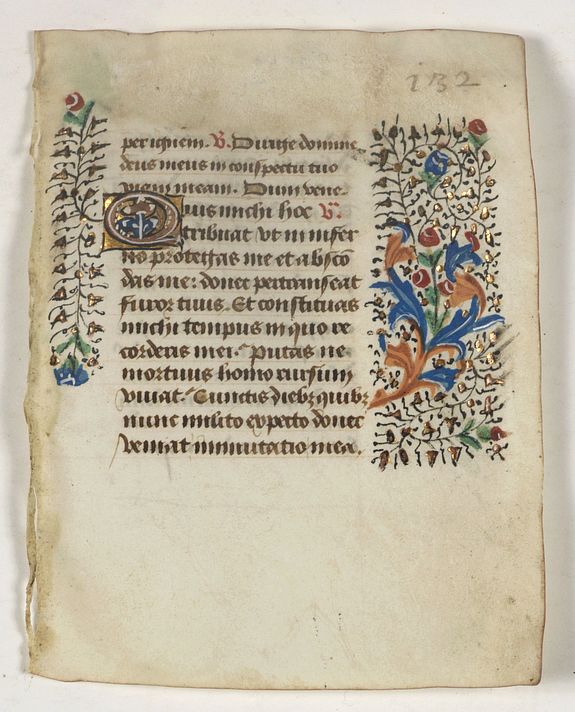 132
per ignem. V. Dirige domine
deus meus in conspectu tuo
viam meam. Dum vene
Quis michi hoc V.
tribuat vt in infer
no protegas me et absco
das me: donec pertranseat
furor tuus. Et constituas
michi tempus in quo re
corderis mei. Putas ne
mortuus homo rursum
viuat. Cunctis diebz quibz
nunc milito expecto donec
veniat immutatio mea.